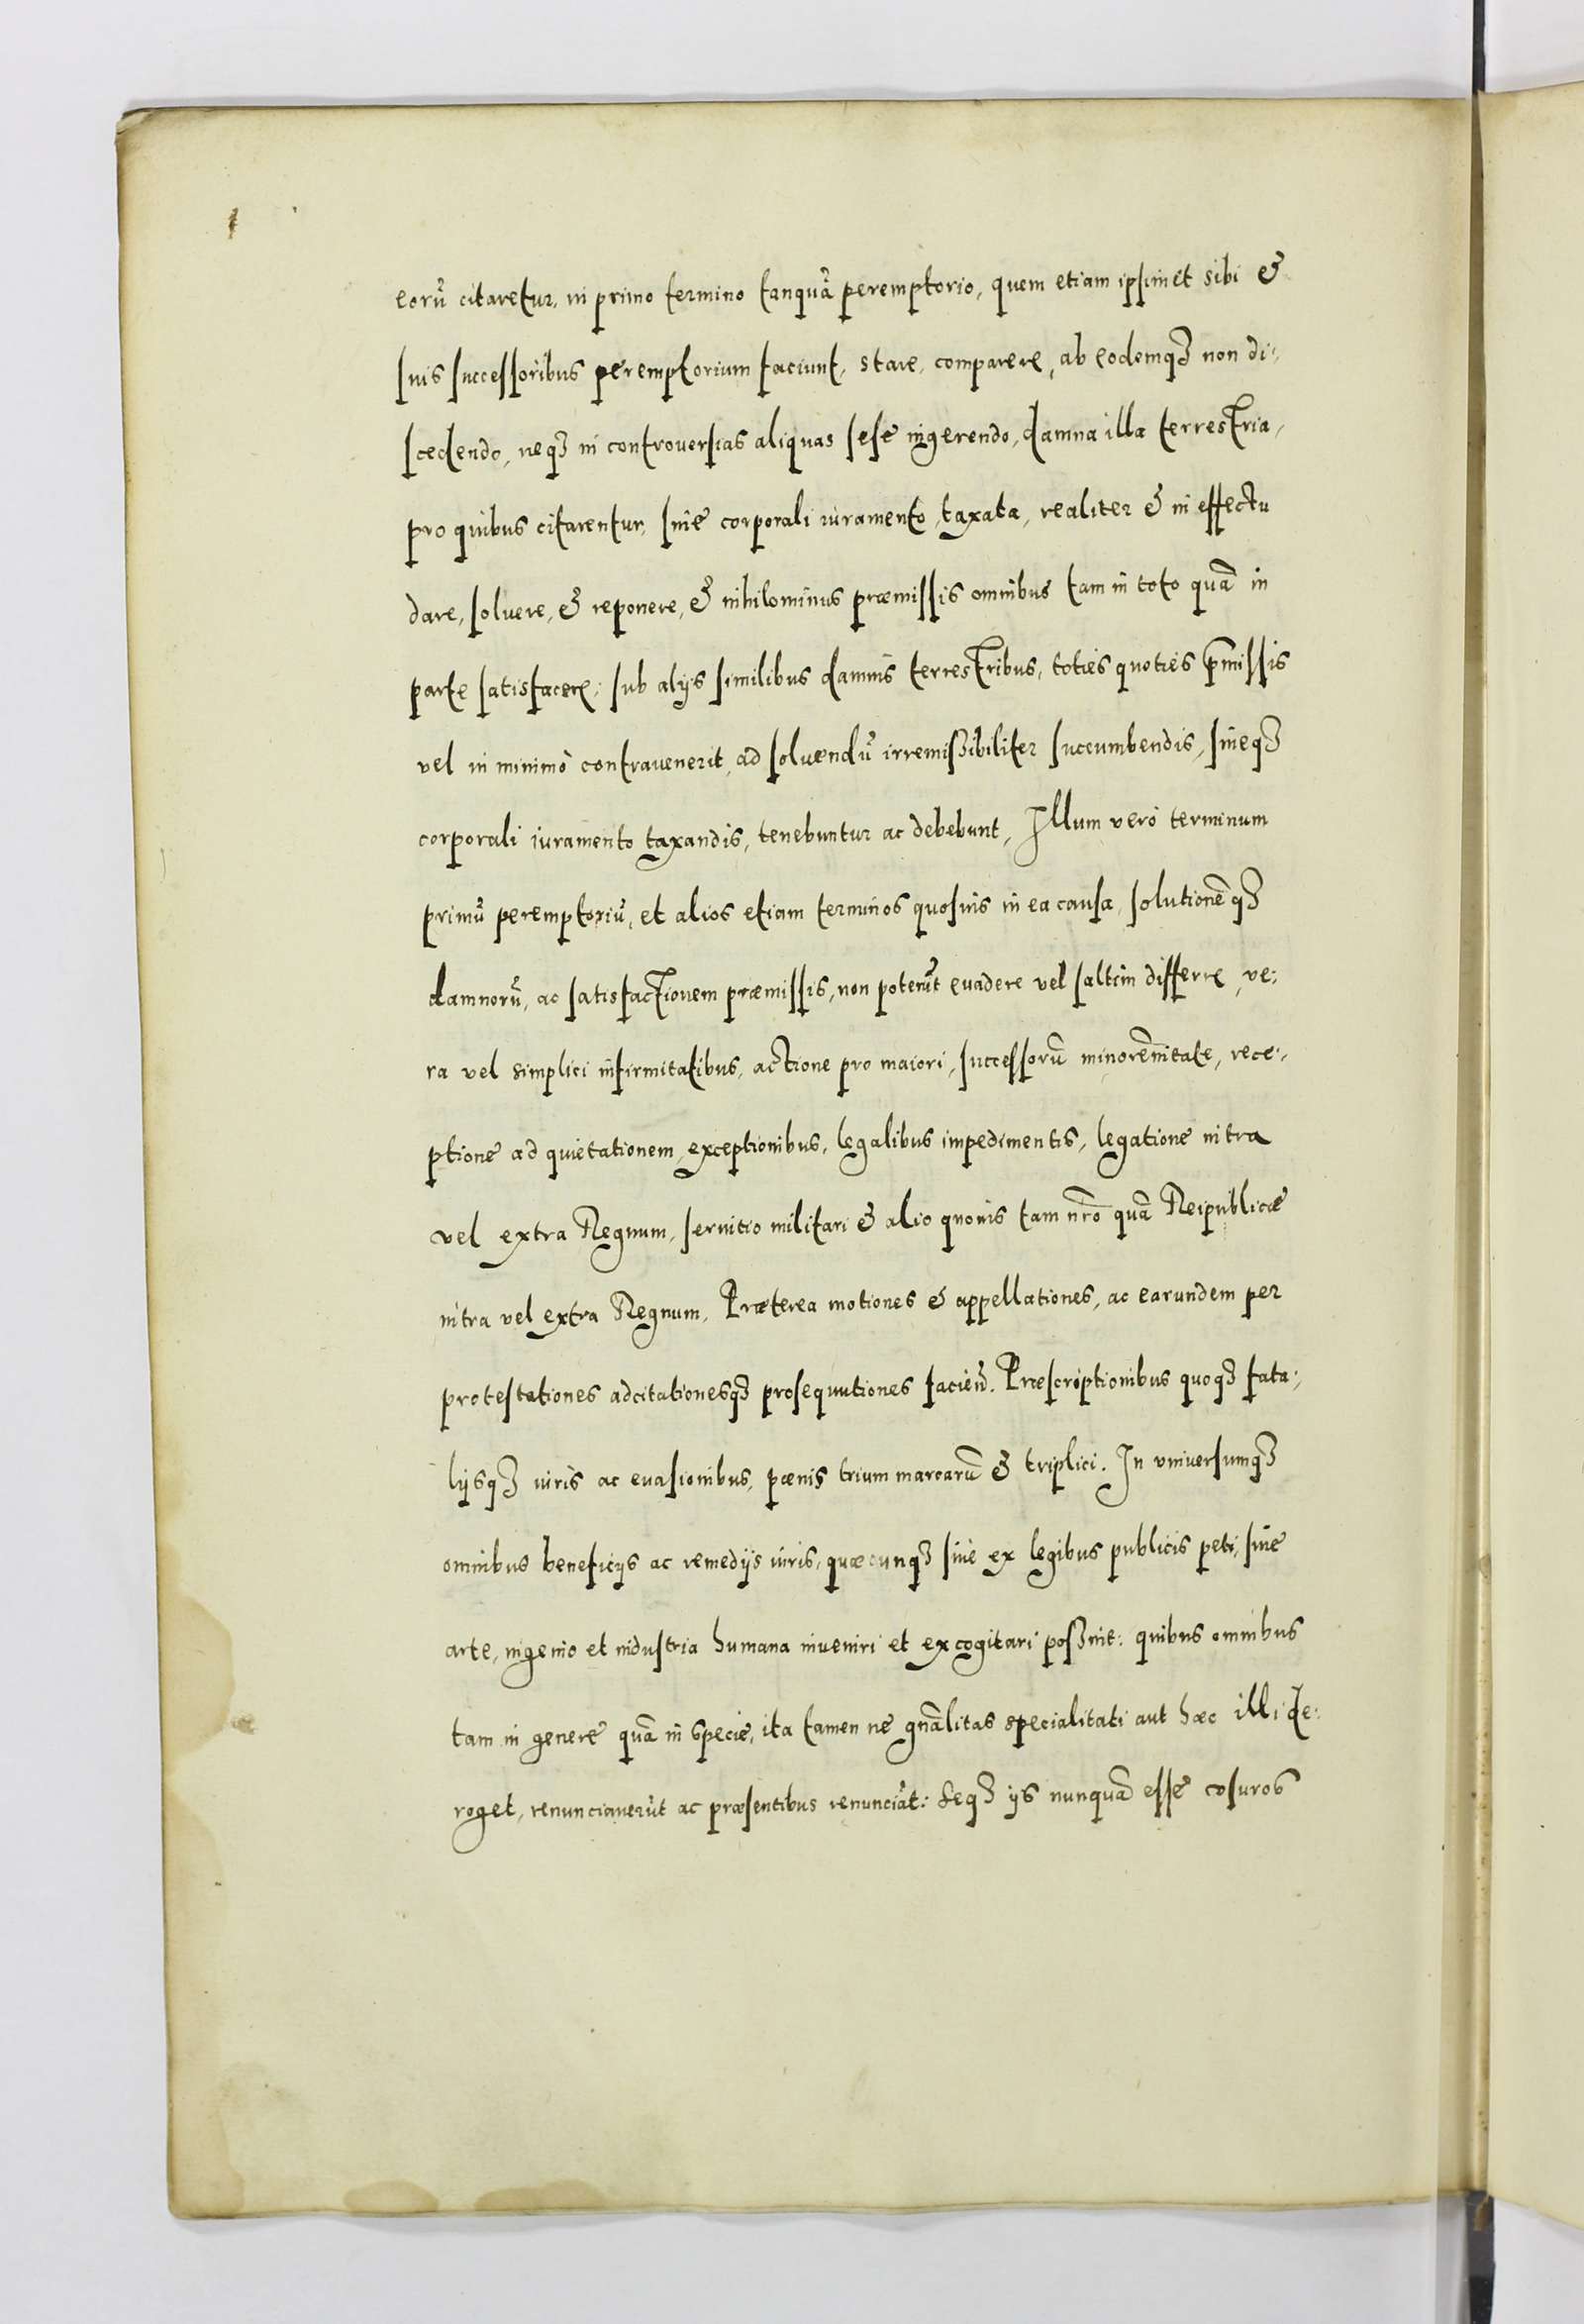 eorũ citaretur, in primo termino tanquã peremptorio, quem etiam ipsimet sibi &
suis successoribus peremptorium faciunt, stare, comparere, ab eodemq3 non di:
scedendo, neq3 in controversias aliquas sese ingerendo, damna illa terrestria,
pro quibus citarentur, sine corporali iuramento taxata, realiter & in effectu
dare, soluere, & reponere, & nihilominus præmissis omnibus tam in toto quã in
parte satisfacere; sub alijs similibus damnis terrestribus, toties quoties p̃missis
vel in minimo contravenerit, ad soluendũ irremißibiliter succumbendis, sineq3
corporali iuramento taxandis, tenebuntur ac debebunt, Illum verò terminum
primũ peremptoriũ, et alios etiam terminos quosuis in ea causa, solutionẽq3
damnorũ, ac satisfactionem præmissis, non poterũt euadere vel saltim differre, ve:
ra vel simplici infirmitatibus, actione pro maiori, successorũ minorẽnitate, rece:
ptione ad quietationem, exceptionibus, legalibus impedimentis, legatione intra
vel extra Regnum, seruitio militari & alio quouis tam nr̃o quã Reipublicæ
intra vel extra Regnum, Præterea motiones & appellationes, ac earundem per
protestationes adcitationesq3 prosequutiones facieñ. Præscriptionibus quoq3 fata:
lijsq3 iuris ac euasionibus, pœnis trium marcarũ & triplici. In vniuersumq3
omnibus beneficijs ac remedijs iuris, quæcunq3 siue ex legibus publicis peti, siue
arte, ingenio et industria humana inueniri et excogitari poßint: quibus omnibus
tam in genere quã in specie, ita tamen ne gñalitas specialitati aut hæc illi de:
roget, renunciauerũt ac præsentibus renunciãt: Seq3 ijs nunquã esse vsuros